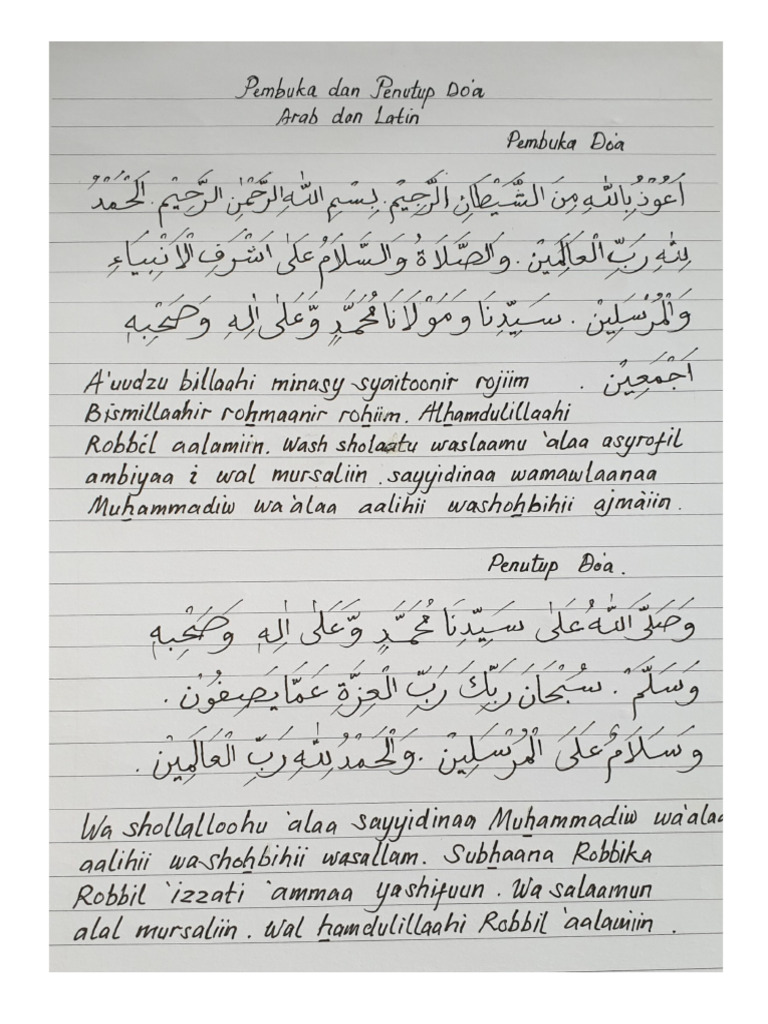 Pembuka dan Penutup Do'a
Arab dan Latin
Pembuka Do'a
اَعُوْذُ بِاللّٰهِ مِنَ الشَّيْطَانِ الرَّجِيْمِ. بِسْمِ اللّٰهِ الرَّحْمٰنِ الرَّحِيْمِ. اَلْحَمْدُ
لِلّٰهِ رَبِّ الْعَالَمِيْنَ. وَالصَّلَاةُ وَالسَّلَامُ عَلٰى اَشْرَفِ الْاَنْبِيَاءِ
وَالْمُرْسَلِيْنَ. سَيِّدِنَا وَمَوْلَانَا مُحَمَّدٍ وَّعَلٰى اٰلِهِ وَصَحْبِهِ
اَجْمَعِيْنَ.
A'uudzu billaahi minasy syaitoonir rojiim
Bismillaahir rohmaanir rohiim. Alhamdulillaahi
Robbil aalamiin. Wash sholaatu waslaamu 'alaa asyrofil
ambiyaa i wal mursaliin. sayyidinaa wamawlaanaa
Muhammadiw wa'alaa aalihii washohbihii ajma'iin.
Penutup Do'a.
وَصَلَّى اللّٰهُ عَلٰى سَيِّدِنَا مُحَمَّدٍ وَّعَلٰى اٰلِهِ وَصَحْبِهِ
وَسَلَّمَ. سُبْحَانَ رَبِّكَ رَبِّ الْعِزَّةِ عَمَّا يَصِفُوْنَ.
وَسَلَامٌ عَلَى الْمُرْسَلِيْنَ. وَالْحَمْدُ لِلّٰهِ رَبِّ الْعَالَمِيْنَ.
Wa shollalloohu 'alaa sayyidinaa Muhammadiw wa'alaa
aalihii wa shohbihii wasallam. Subhaana Robbika
Robbil 'izzati 'ammaa yashifuun. Wa salaamun
alal mursaliin. Wal hamdulillaahi Robbil 'aalamiin.